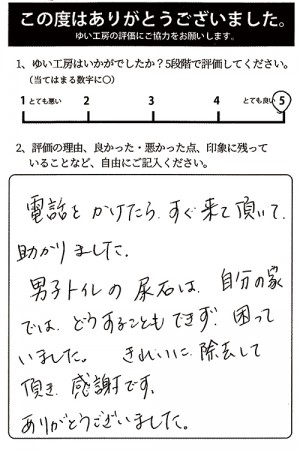 この度はありがとうございました。
ゆい工房の評価にご協力をお願いします。
1、ゆい工房はいかがでしたか？5段階で評価してください。
（当てはまる数字に○）
1 とても悪い 2 3 4 とても良い 5
2、評価の理由、良かった・悪かった点、印象に残って
いることなど、自由にご記入ください。
電話をかけたら、すぐ来て頂いて、
助かりました。
男子トイレの尿石は、自分の家
では、どうすることもできず、困って
いました。 きれいに除去して
頂き、感謝です。
ありがとうございました。